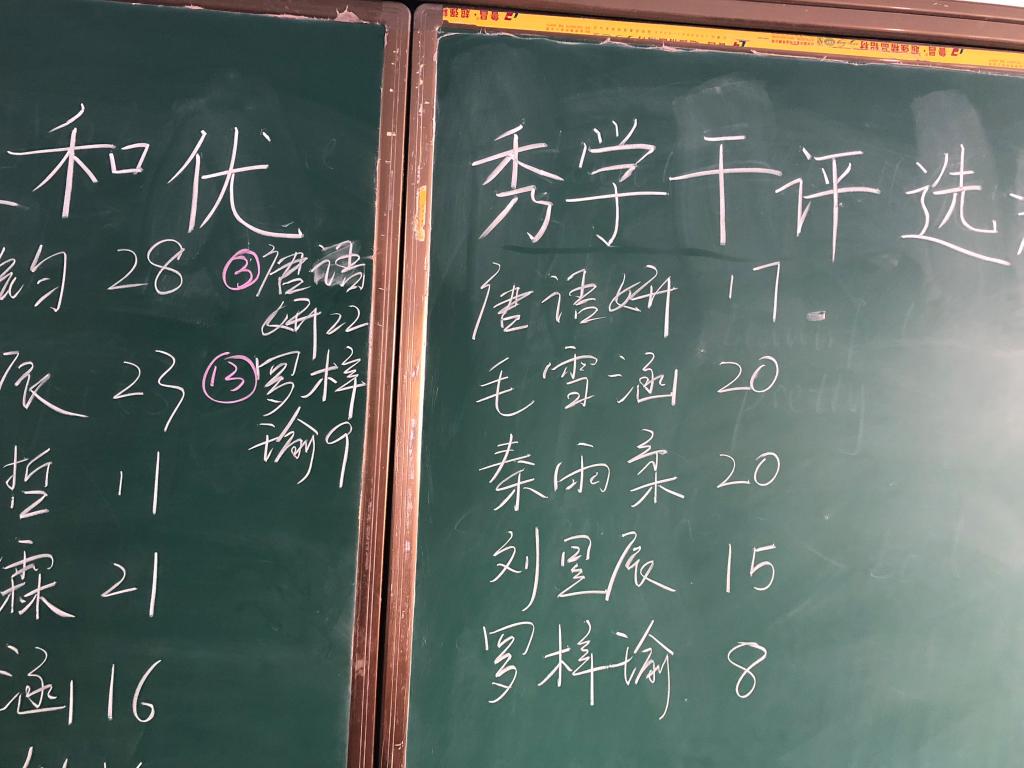 和优
钧 28
③唐语
妍22
辰 23
⑬罗梓
瑜9
哲 11
霖 21
涵 16
秀学干评选
唐语妍 17
毛雪涵 20
秦雨柔 20
刘昱辰 15
罗梓瑜 8